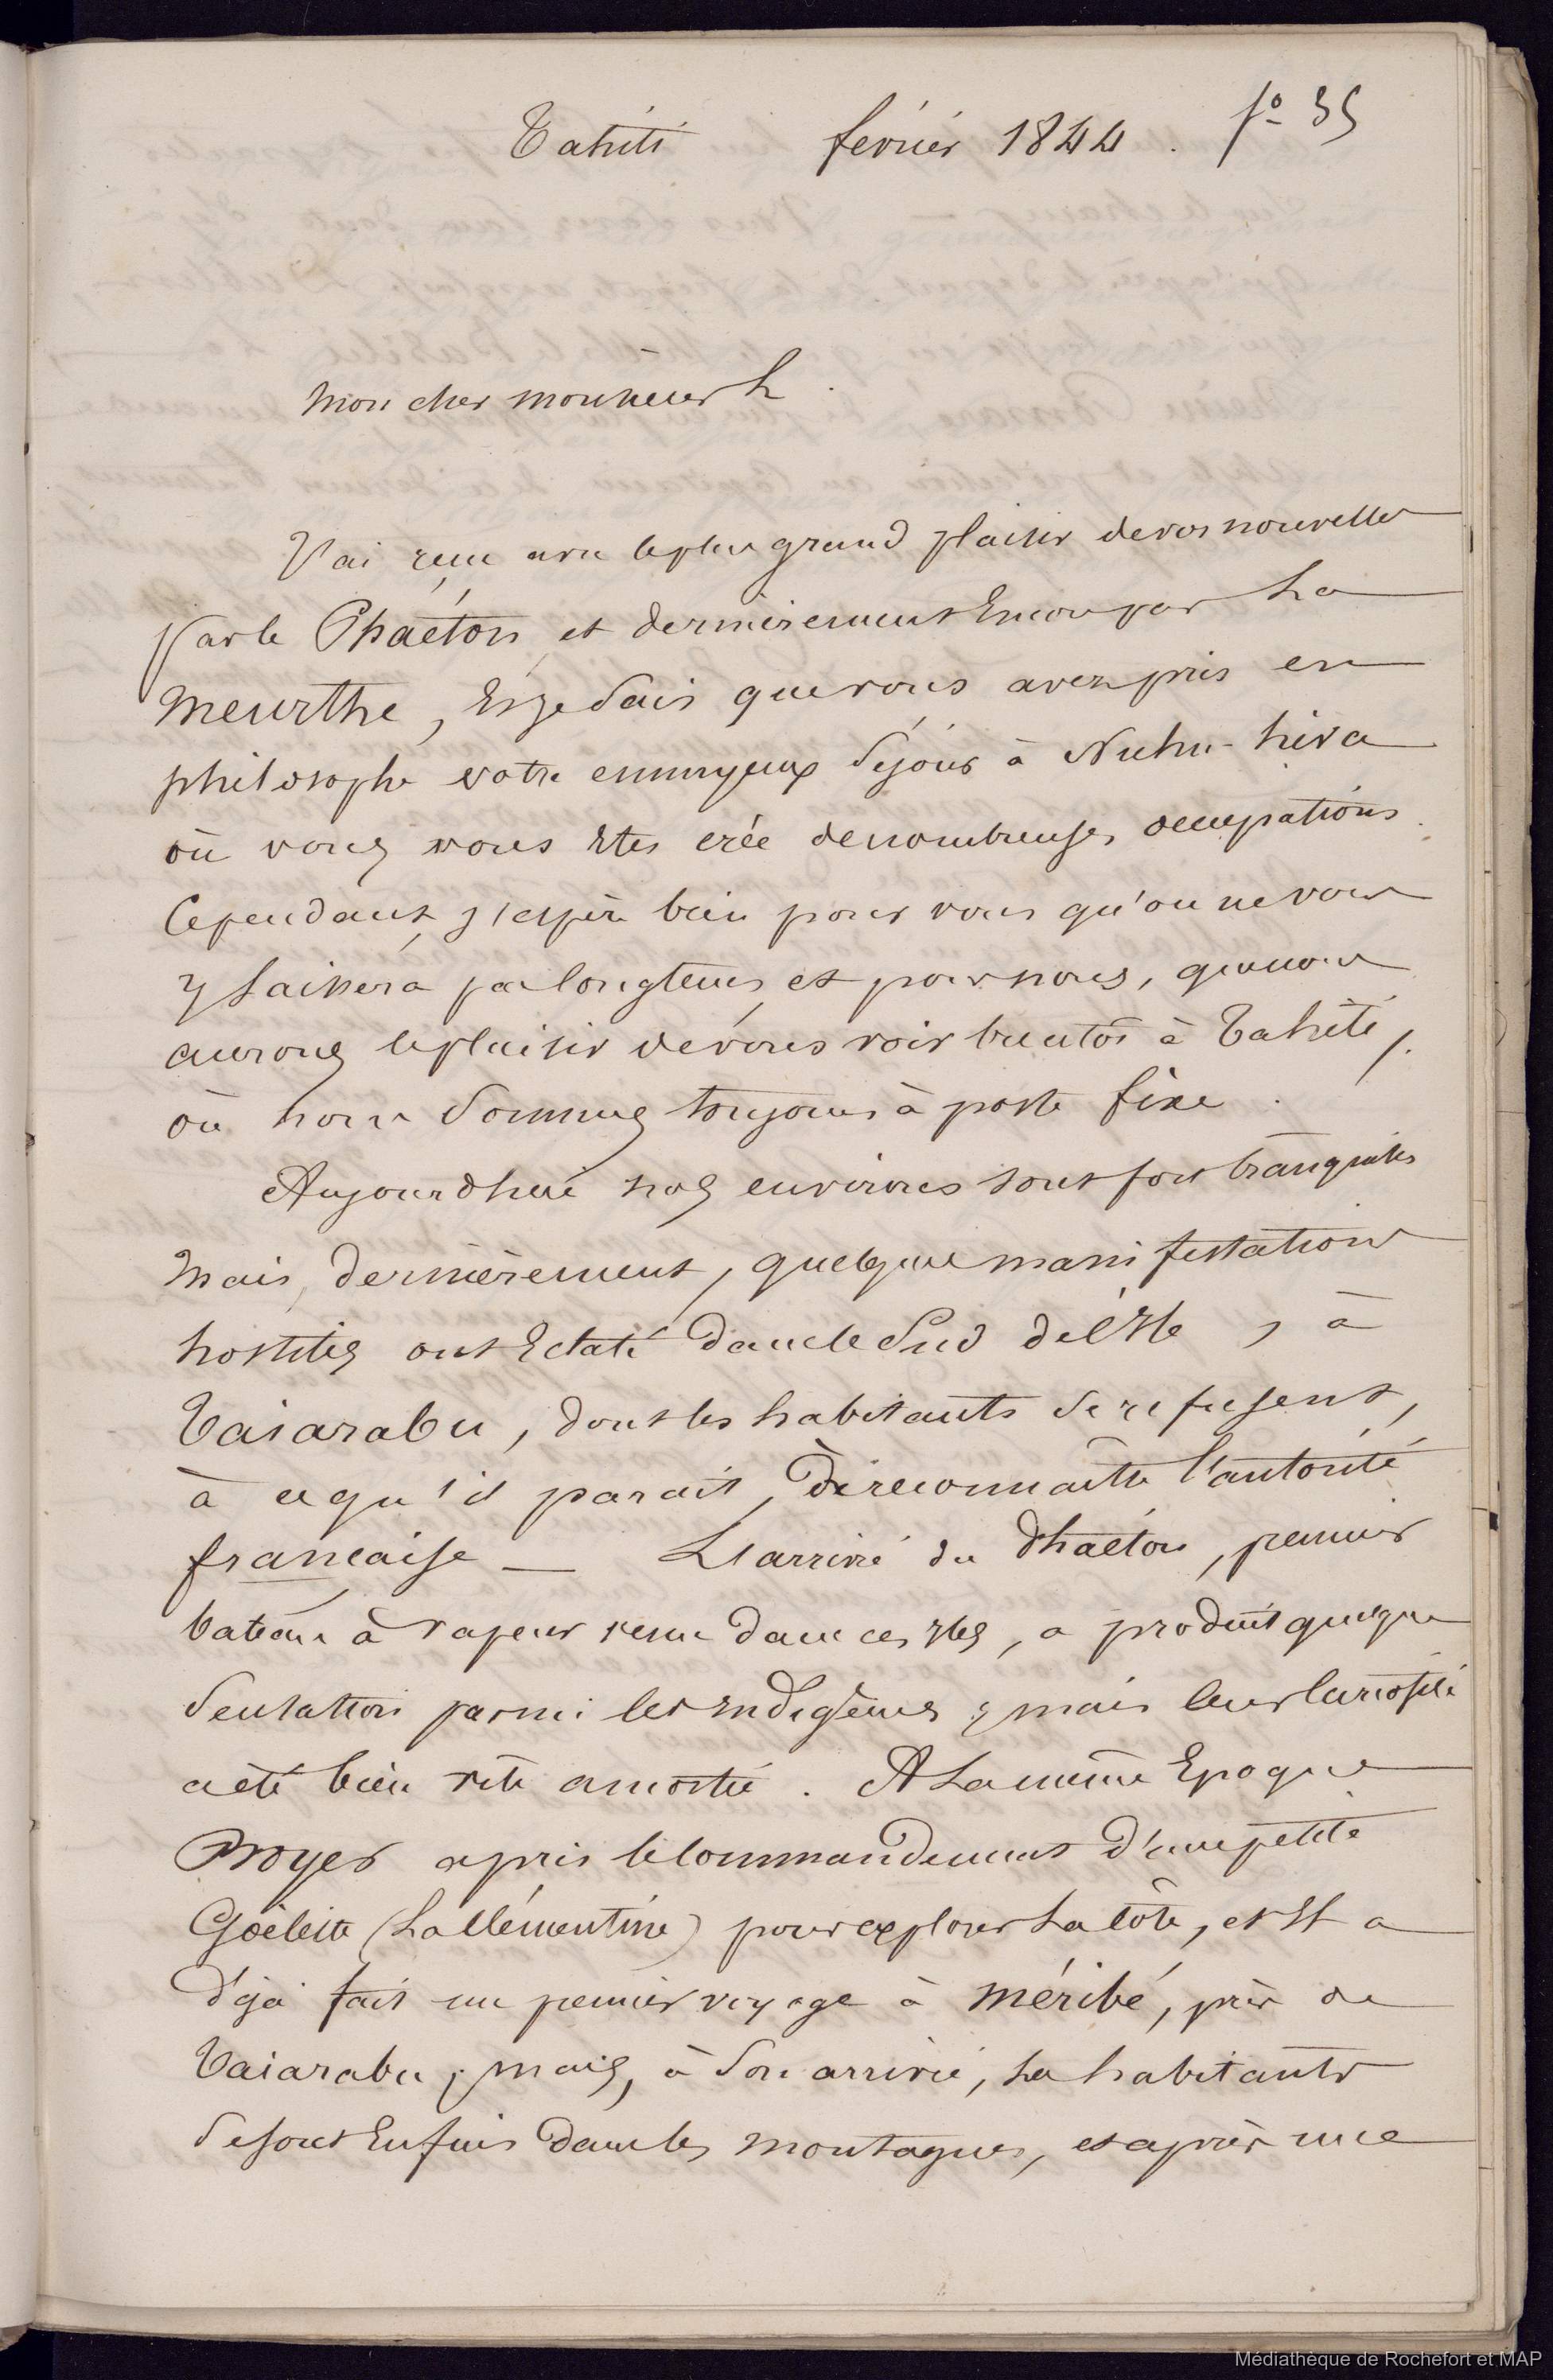 Tahiti février 1844. fo 35
Mon cher monsieur L.
J'ai reçu avec le plus grand plaisir de vos nouvelles
par le Phaéton, et dernièrement Encore par La
Meurthe, Et je sais que vous avez pris en
philosophe votre ennuyeux séjour à Nuhu-hiva
où vous vous êtes créé de nombreuses occupations.
Cependant, j'espère bien pour vous qu'on ne vous
y Laissera pas longtems, et pour nous, que nous
aurons le plaisir de vous voir bientôt à Tahiti,
où nous sommes toujours à poste fixe.
Aujourdhui nos environs sont fort tranquiles
Mais, dernièrement, quelques manifestations
hostiles ont Eclaté dans le Sud de l'Ile, à
Taiarabu, dont les habitants se refusent,
à ce qu'il parait, à reconnaitre l'autorité
francaise — L'arrivé du Phaéton, premier
bateau à vapeur venu dans ces Iles, a produit quelque
sensation parmi les Indigènes; mais leur Curiosité
a été bien vite amortie. A La même Epoque
Proyer a pris le Commandement d'une petite
Goëlette (La Clémentine) pour explorer La Côte, et Il a
déja fait un premier voyage à Méribé, près de
Taiarabu; mais, à son arrivée, Les habitants
se sont Enfuis dans les montagnes, et après une
Médiathèque de Rochefort et MAP